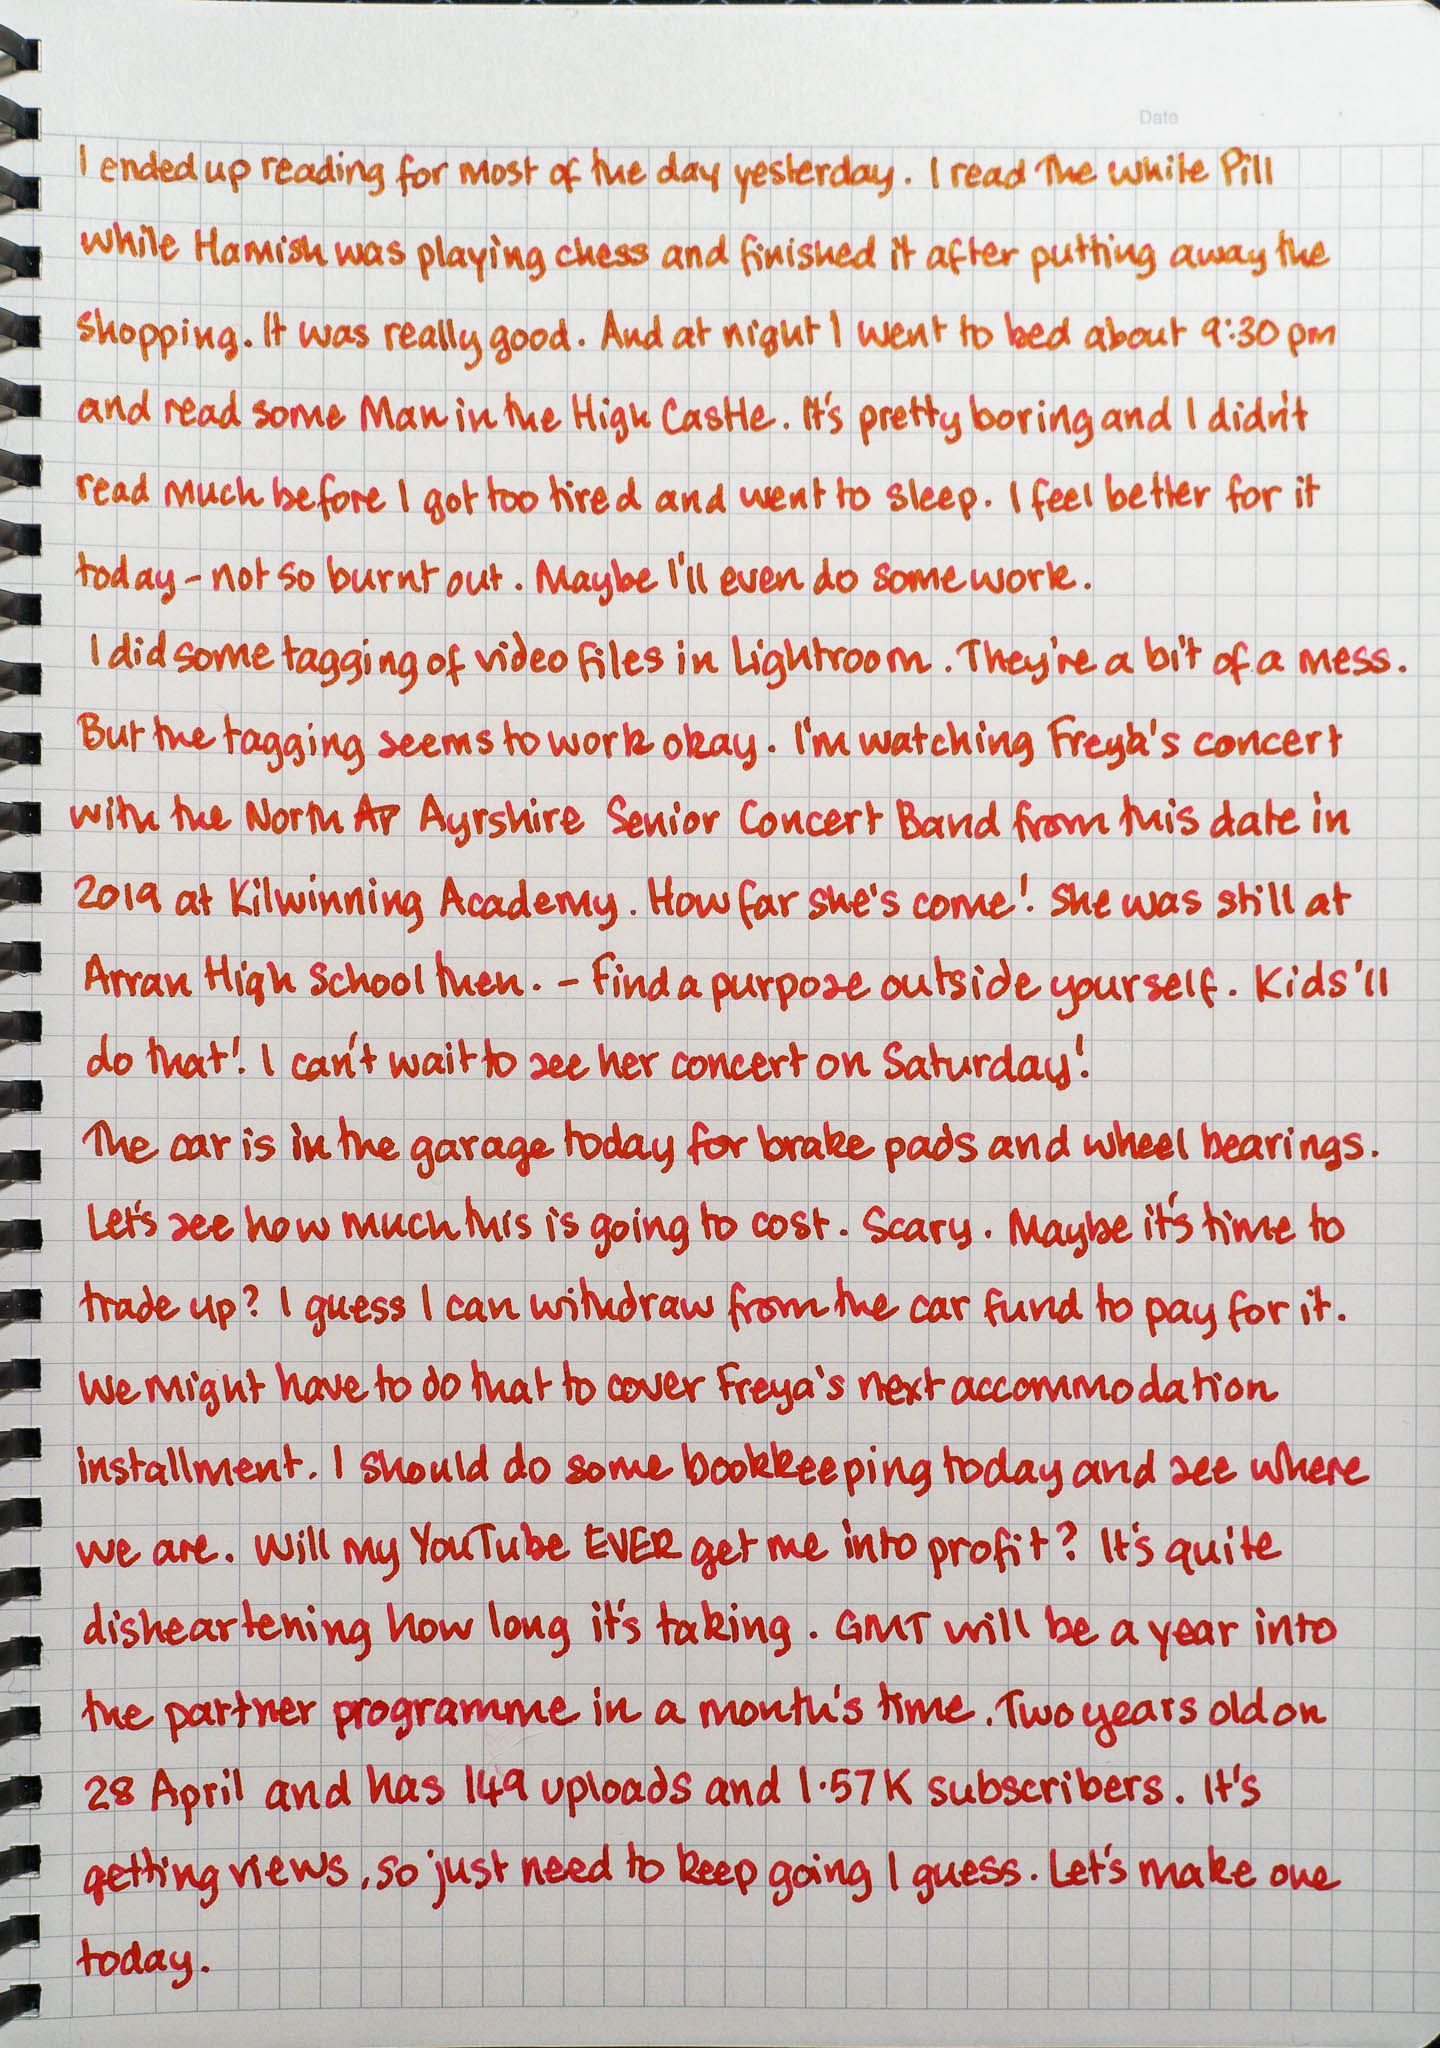 Date
I ended up reading for most of the day yesterday. I read The White Pill
while Hamish was playing chess and finished it after putting away the
shopping. It was really good. And at night I went to bed about 9:30 pm
and read some Man in the High Castle. It's pretty boring and I didn't
read much before I got too tired and went to sleep. I feel better for it
today - not so burnt out. Maybe I'll even do some work.
I did some tagging of video files in Lightroom. They're a bit of a mess.
But the tagging seems to work okay. I'm watching Freya's concert
with the North Ar Ayrshire Senior Concert Band from this date in
2019 at Kilwinning Academy. How far she's come! She was still at
Arran High School then. - Find a purpose outside yourself. Kids'll
do that! I can't wait to see her concert on Saturday!
The car is in the garage today for brake pads and wheel bearings.
Let's see how much this is going to cost. Scary. Maybe it's time to
trade up? I guess I can withdraw from the car fund to pay for it.
We might have to do that to cover Freya's next accommodation
installment. I should do some bookkeeping today and see where
we are. Will my YouTube EVER get me into profit? It's quite
disheartening how long it's taking. GMT will be a year into
the partner programme in a month's time. Two years old on
28 April and has 149 uploads and 1.57K subscribers. It's
getting views, so just need to keep going I guess. Let's make one
today.